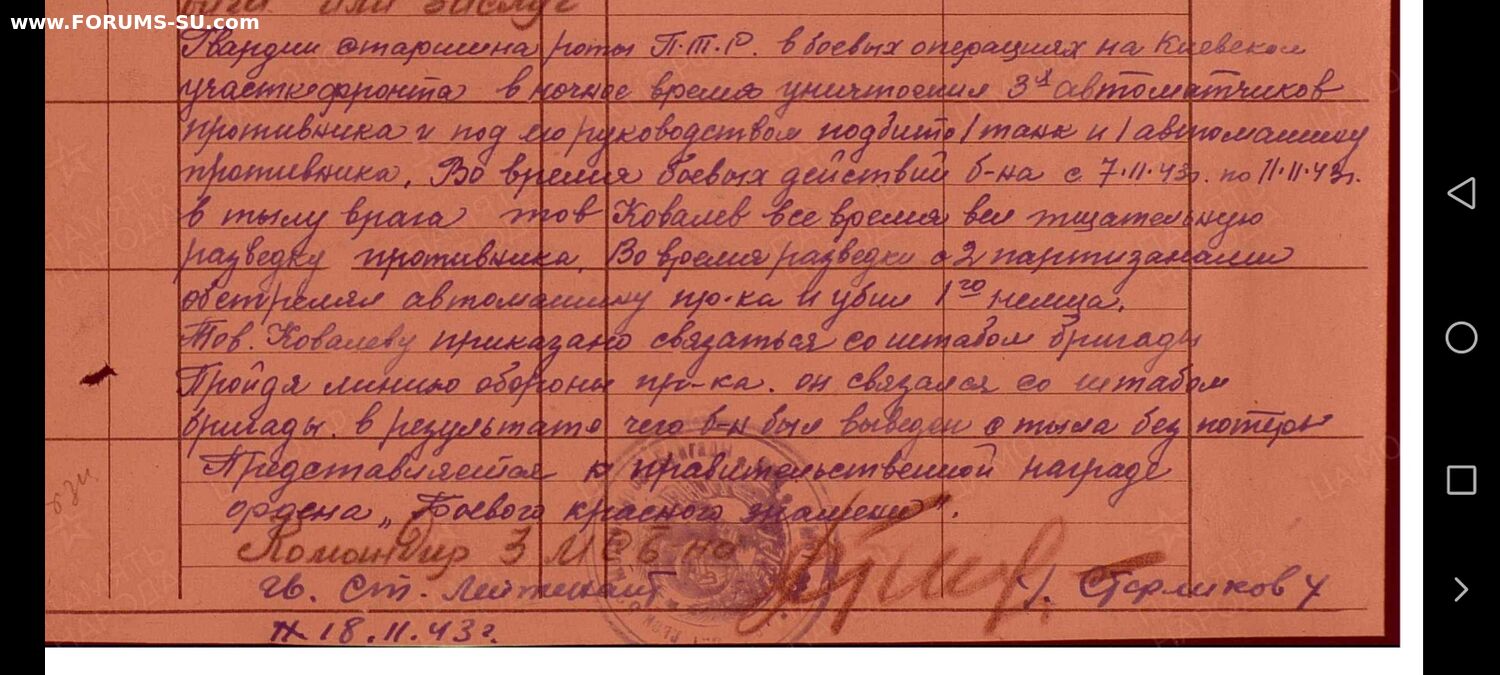 www.FORUMS-SU.com
Гвардии старшина роты П.Т.Р. в боевых операциях на Киевском
участке фронта в ночное время уничтожил 3х автоматчиков
противника и под его руководством подбито 1 танк и 1 автомашину
противника. Во время боевых действий б-на с 7.11.43г. по 11.11.43г.
в тылу врага тов Ковалев все время вел тщательную
разведку противника. Во время разведки с 2 партизанами
обстрелял автомашину пр-ка и убил 1го немца.
Тов. Ковалеву приказано связаться со штабом бригады
Пройдя линию обороны пр-ка. он связался со штабом
бригады. в результате чего б-н был выведен с тыла без потерь
Представляется к правительственной награде
ордена „Боевого красного знамени".
Командир 3 МСБ
гв. Ст. Лейтенант Стерликов
18.11.43г.